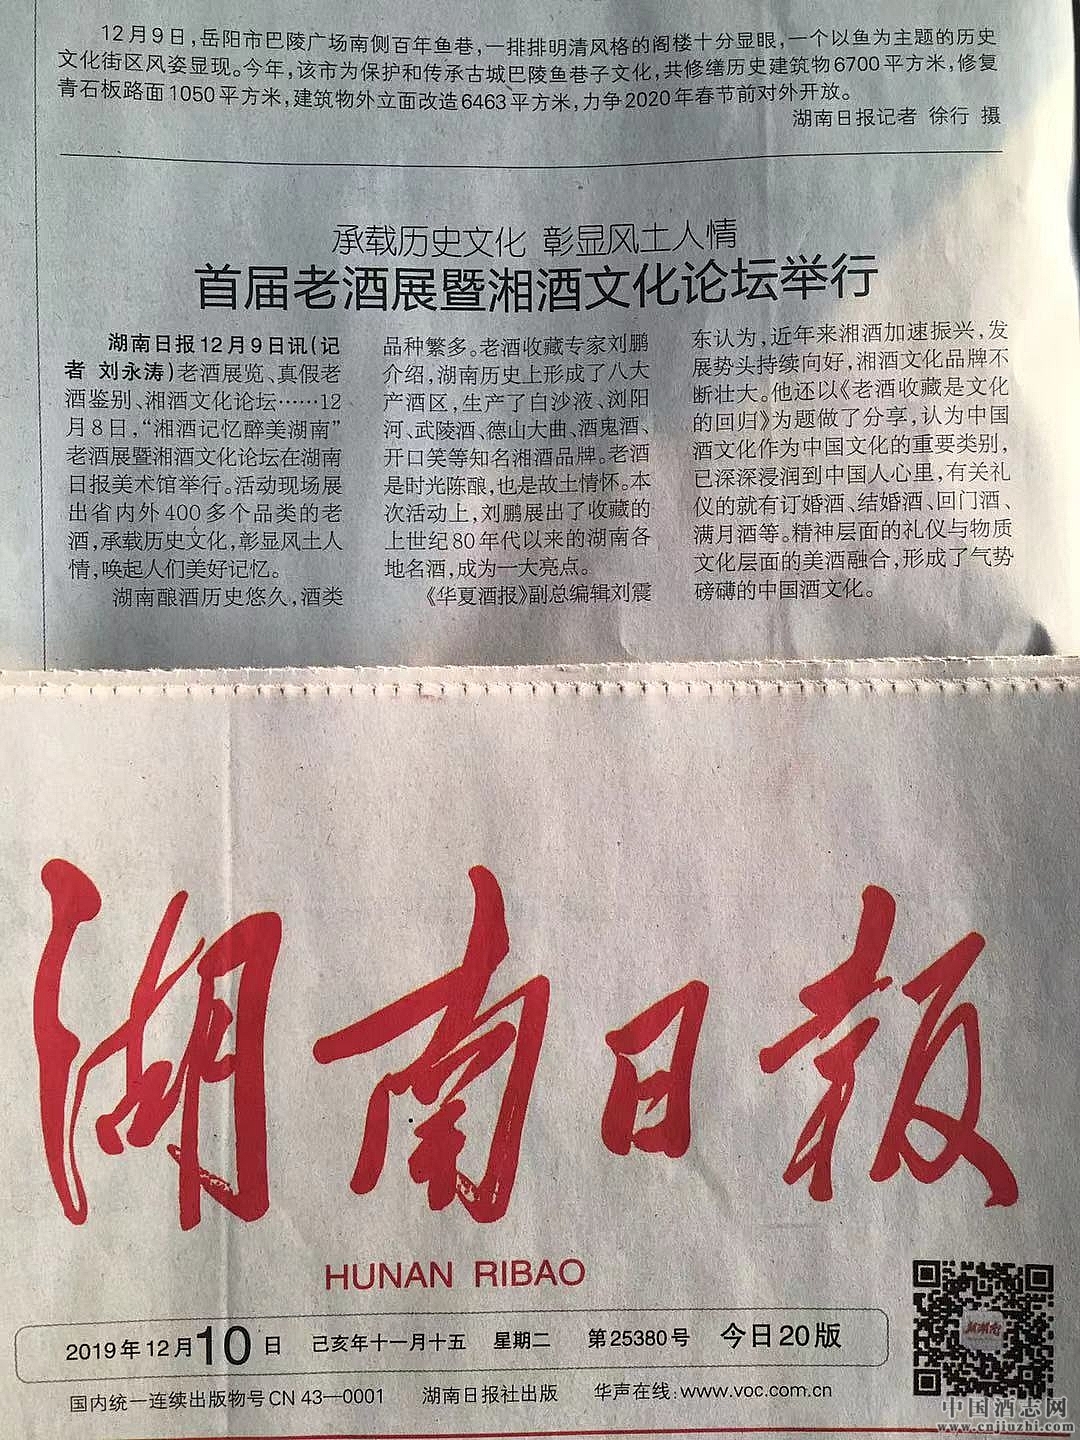 12月9日，岳阳市巴陵广场南侧百年鱼巷，一排排明清风格的阁楼十分显眼，一个以鱼为主题的历史
文化街区风姿显现。今年，该市为保护和传承古城巴陵鱼巷子文化，共修缮历史建筑物6700平方米，修复
青石板路面1050平方米，建筑物外立面改造6463平方米，力争2020年春节前对外开放。
湖南日报记者 徐行 摄
承载历史文化 彰显风土人情
首届老酒展暨湘酒文化论坛举行
湖南日报12月9日讯（记
者 刘永涛）老酒展览、真假老
酒鉴别、湘酒文化论坛……12
月8日，“湘酒记忆醉美湖南”
老酒展暨湘酒文化论坛在湖南
日报美术馆举行。活动现场展
出省内外400多个品类的老
酒，承载历史文化，彰显风土人
情，唤起人们美好记忆。
湖南酿酒历史悠久，酒类
品种繁多。老酒收藏专家刘鹏
介绍，湖南历史上形成了八大
产酒区，生产了白沙液、浏阳
河、武陵酒、德山大曲、酒鬼酒、
开口笑等知名湘酒品牌。老酒
是时光陈酿，也是故土情怀。本
次活动上，刘鹏展出了收藏的
上世纪80年代以来的湖南各
地名酒，成为一大亮点。
《华夏酒报》副总编辑刘震
东认为，近年来湘酒加速振兴，发
展势头持续向好，湘酒文化品牌不
断壮大。他还以《老酒收藏是文化
的回归》为题做了分享，认为中国
酒文化作为中国文化的重要类别，
已深深浸润到中国人心里，有关礼
仪的就有订婚酒、结婚酒、回门酒、
满月酒等。精神层面的礼仪与物质
文化层面的美酒融合，形成了气势
磅礴的中国酒文化。
湖南日报
HUNAN RIBAO
2019年12月10日 己亥年十一月十五 星期二 第25380号 今日20版
国内统一连续出版物号CN 43—0001 湖南日报社出版 华声在线：www.voc.com.cn
新湖南
中国酒志网
www.cnjiuzhi.com